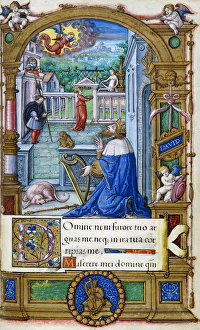 DAVID
Domine ne in furore tuo ar
guas me neq; in ira tua cor
ripias me.
Miserere mei domine qm̄